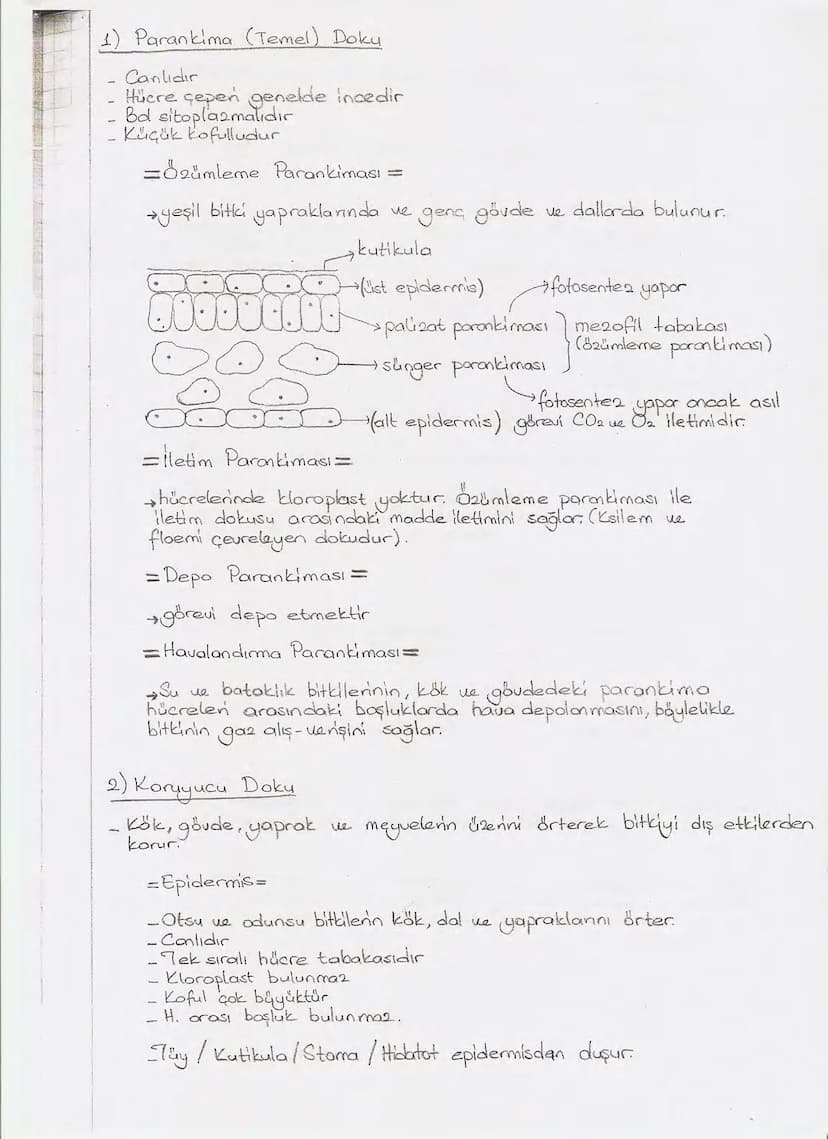 1) Parankima (Temel) Doku
- Canlıdır
- Hücre çeperi genelde incedir
- Bol sitoplazmalıdır
- Küçük kofulludur
=Özümleme Parankiması=
→yeşil bitki yapraklarında ve genç gövde ve dallarda bulunur.
→kutikula
→(üst epidermis)
→fotosentez yapar
→palizat parankiması
mezofil tabakası
(özümleme parankiması)
→sünger parankiması
→fotosentez yapar ancak asıl
görevi CO2 ve O2 iletimidir.
→(alt epidermis)
=İletim Parankiması=
→hücrelerinde kloroplast yoktur. Özümleme parankiması ile
iletim dokusu arasındaki madde iletimini sağlar. (Ksilem ve
floemi çevreleyen dokudur).
=Depo Parankiması=
→görevi depo etmektir
=Havalandırma Parankiması=
→Su ve bataklık bitkilerinin, kök ve gövdedeki parankima
hücreleri arasındaki boşluklarda hava depolanmasını, böylelikle
bitkinin gaz alış-verişini sağlar.
2) Koruyucu Doku
- Kök, gövde, yaprak ve meyvelerin üzerini örterek bitkiyi dış etkilerden
korur.
=Epidermis=
- Otsu ve odunsu bitkilerin kök, dal ve yapraklarını örter.
- Canlıdır
- Tek sıralı hücre tabakasıdır
- Kloroplast bulunmaz
- Koful çok büyüktür
- H. arası boşluk bulunmaz.
- Tüy / Kutikula / Stoma / Hidatot epidermisdan duşur.